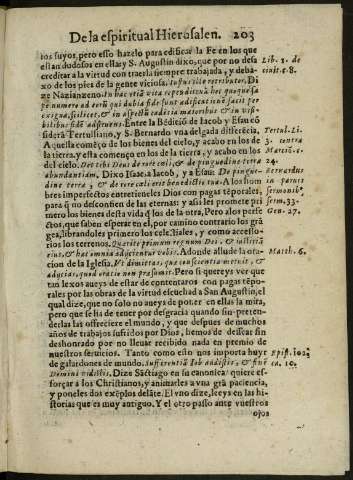 De la espiritual Hierusalen. 203
tos suyos, pero esso hazelo para edificar la Fe en los que
estan dudosos en ella: y S. Augustin dixo, que por no desa
creditar a la virtud con traerla siempre trabajada, y deba-
xo de los pies de la gente viciosa. Di
ze Nazianzeno. In hac etiã vita
pe numero ad eorũ qui dubia fide sunt
& in
Entre la Bẽdiciõ de Iacob y Esau cõ
siderà Tertuliano, y S. Bernardo vna delgada differẽcia,
Aquella começò de los bienes del cielo, y acabo en los de
la tierra, y esta començo en los de la tierra, y acabo en los
del cielo. Det tibi Deus de rore cœli, & de pinguedine terræ
abundantiam, Dixo Isaac a Iacob, y a Esau. De pingue-
dine terræ, & de rore cœli erit benedictio tua. A los hom
bres imperfectos entretieneles Dios con pagas tẽporales,
para q̃ no desconfien de las eternas: y assi les promete pri
mero los bienes desta vida q̃ los de la otra, Pero a los perfe
ctos, que saben esperar en el, por camino contrario los grã
gea, librandoles primero los celestiales, y como accesso-
rios los terrenos. Quærite primum regnum Dei, & iustitiã
eius, & hæc omnia adijcientur vobis. Adonde allude la ora-
cion de la Iglesia, Vt dimittas quæ conscientia metuit, &
adijcias quod oratio non præsumit. Pero si quereys ver que
tan lexos aueys de estar de contentaros con pagas tẽpo-
rales por las obras de la virtud escuchad a San Augustin, el
qual dize, que no solo no aueys de poner en ellas la mira,
pero que se ha de tener por desgracia quando sin preten-
derlas las offreciere el mundo, y que despues de muchos
años de trabajos sufridos por Dios, hemos de dessear sin
deshonrado por no lleuar recibido nada en premio de
nuestros seruicios. Tanto como esto nos importa huyr
de galardones de mundo. Sufferentiã Iob audistis, & finẽ
Domini vidistis, Dize Sãctiago en su canonica: quiere es-
forçar à los Christianos, y animarles a vna grã paciencia,
y poneles dos exẽplos delãte. El vno dize, leeys en las his-
torias que es muy antiguo. Y el otro passo ante vuestros
ojos
Lib. 1. de
ciuit. c. 8.
Tertul. Li.
3. contra
Marciõ. c.
24.
Bernardus
in paruis
sermonib⁹
serm. 33.
Gen. 27.
Matth. 6.
Epist. 102.
ca. 10.